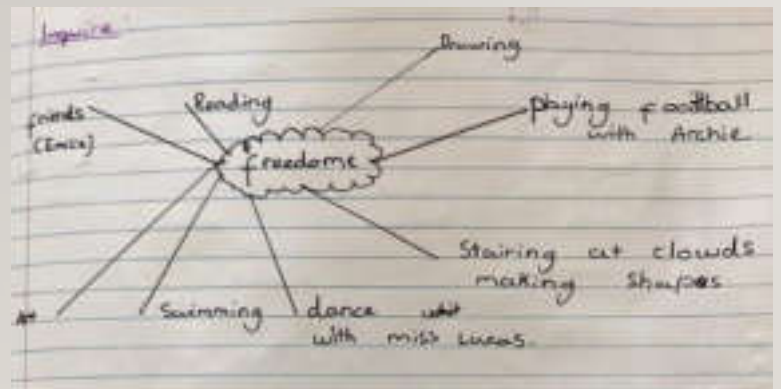 Inquire
Drawing
Reading
playing football
with Archie
friends
freedome
Stairing at clowds
making shapes
Art
Swimming
dance
with miss Lucas.